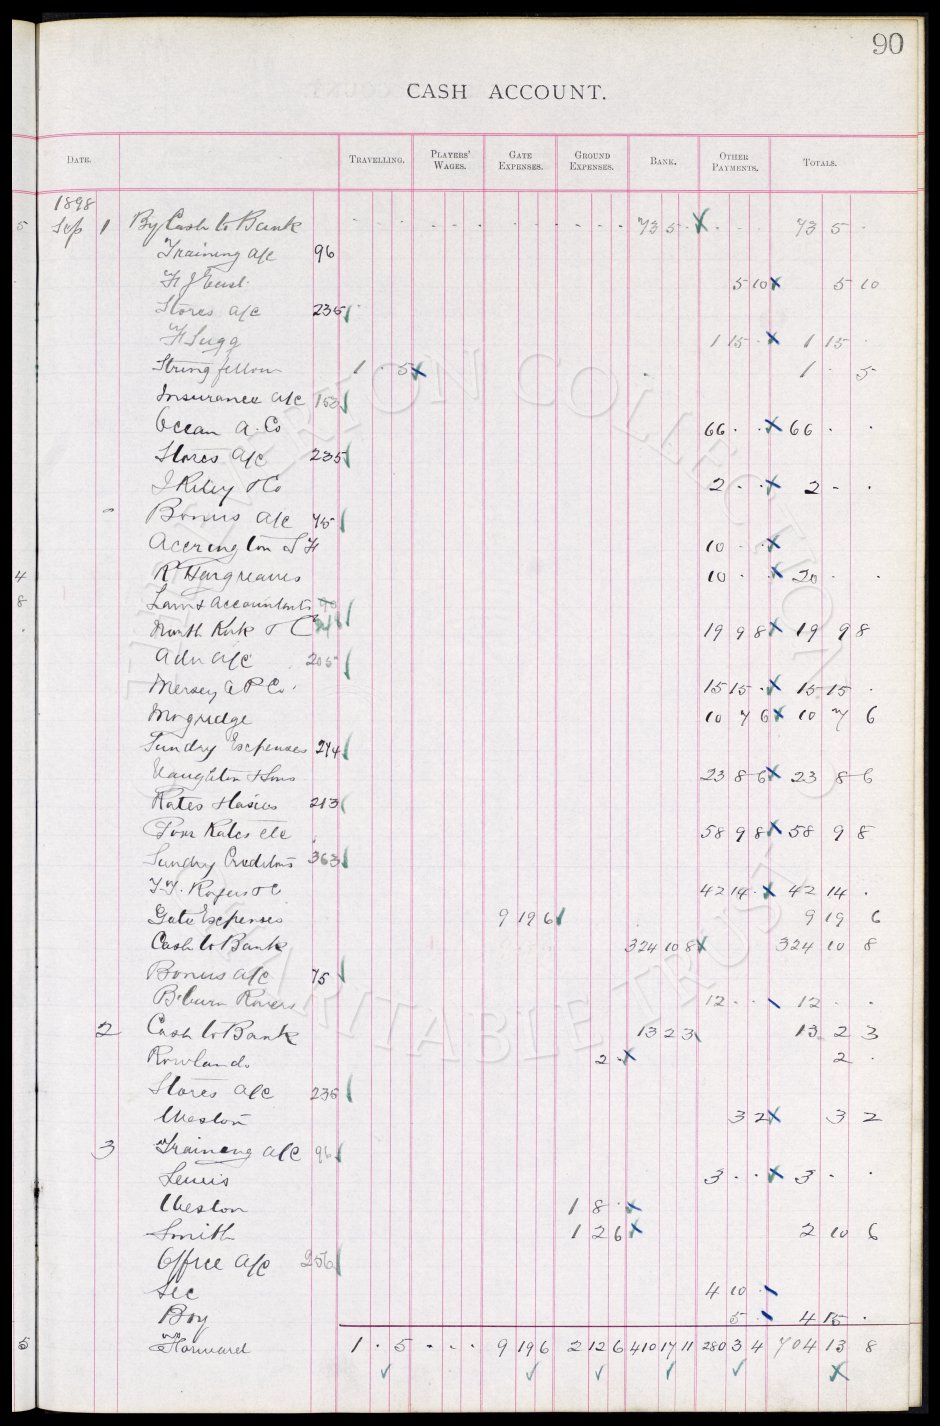 90
CASH ACCOUNT.
DATE. TRAVELLING. PLAYERS' WAGES. GATE EXPENSES. GROUND EXPENSES. BANK. OTHER PAYMENTS. TOTALS.
1898
5 Sep 1 By Cash to Bank 73 5 . 73 5 .
Training a/c 96
5 10 5 10
Stores a/c 235
F Sugg 1 15 . 1 15 .
Stringfellow 1 . 5 1 . 5
Insurance a/c 153
Ocean A. Co 66 . . 66 . .
Stores a/c 235
J Riley & Co 2 . . 2 . .
Bonus a/c 75
Accrington S H 10 . .
4 R Hargreaves 10 . . 20 . .
8 Law & Accountants
North Kirk & Co 19 9 8 19 9 8
Adv a/c 205
Mersey A P Co. 15 15 . 15 15 .
Mogridge 10 7 6 10 7 6
Sundry Expenses 274
Naughton & Sons 23 8 6 23 8 6
Rates & Taxes 213
Poor Rates etc 58 9 8 58 9 8
Sundry Creditors 363
T.T. Rogers & C 42 14 . 42 14 .
Gate Expenses 9 19 6 9 19 6
Cash to Bank 324 10 8 324 10 8
Bonus a/c 75
B'burn Rovers 12 . . 12 . .
2 Cash to Bank 13 2 3 13 2 3
Rowlands 2 . 2 .
Stores a/c 235
Weston 3 2 3 2
3 Training a/c 96
Lewis 3 . . 3 . .
Weston 1 8 .
Smith 1 2 6 2 10 6
Office a/c 256
Sec 4 10 .
Boy 5 . 4 15 .
5 Forward 1 . 5 . . . 9 19 6 2 12 6 410 17 11 280 3 4 704 13 8
THE EVERTON COLLECTION
CHARITABLE TRUST